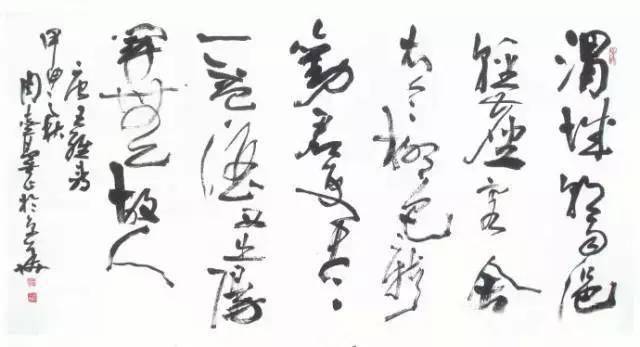 渭城朝雨浥
輕塵客舍
青青柳色新
勸君更盡
一盃酒西出陽
關無故人
唐王維詩
甲申之秋
周於